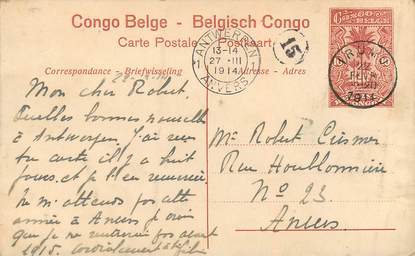 Congo Belge - Belgisch Congo
Carte Postale - Postkaart
Correspondance - Briefwisseling
Adresse - Adres
ANTWERPEN
13-14
27 - III
1914
ANVERS
15
CONGO
BELGE
Mon cher Robert.
Quelles bonnes nouvelles
à Antwerpen j'ai reçu
ta carte il y a huit
jours. et je t'en remercie.
Ne m'attends pas cette
année à Anvers je crois
que je ne rentrerai pas avant
1915. Cordialement
Mr Robert
Rue Houblonnière
No 23
Anvers